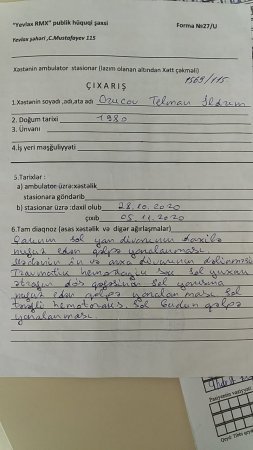 "Yevlax RMX" publik hüquqi şəxsi
Forma №27/U
Yevlax şəhəri ,C.Mustafayev 115
Xəstənin ambulator stasionar (lazım olanan altından Xətt çəkməli)
ÇIXARIŞ
1569/115
1.Xəstənin soyadı ,adı,ata adı Telman İldırım
2. Doğum tarixi 1980
3. Ünvanı
4.İş yeri məşğuliyyəti
5.Tarixlər :
a) ambulator üzrə:xəstəlik
stasionara göndərib
b) stasionar üzrə :daxil olub 28.10.2020
çıxıb 05.11.2020
6.Tam diaqnoz (əsas xəstəlik və digər ağırlaşmalar)
Qarının sol yan divarının daxilə
nüfuz edən qəlpə yaralanması.
Mədənin ön və arxa divarının dəlinməsi
Travmatik hemorragik şok. Sol
ətrafın döş qəfəsinin sol yarısına
nüfuz edən qəlpə yaralanması. Sol
tərəfli hemotoraks. Sol budun qəlpə
yaralanması.